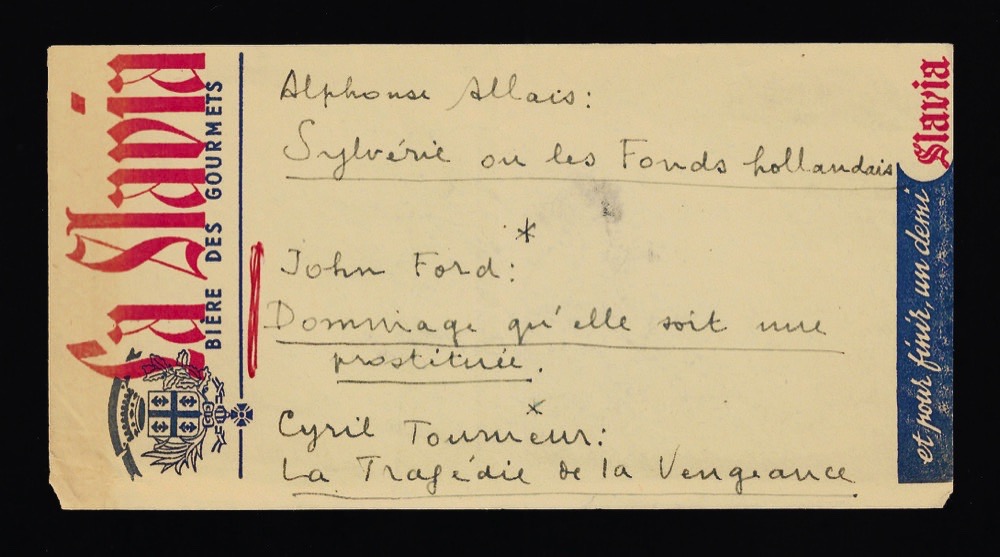 La Slavia
BIÈRE DES GOURMETS
Alphonse Allais:
Sylvérie ou les Fonds hollandais
*
John Ford:
Dommage qu'elle soit une
prostituée.
x
Cyril Tourneur:
La Tragédie de la Vengeance
Slavia
et pour finir, un demi